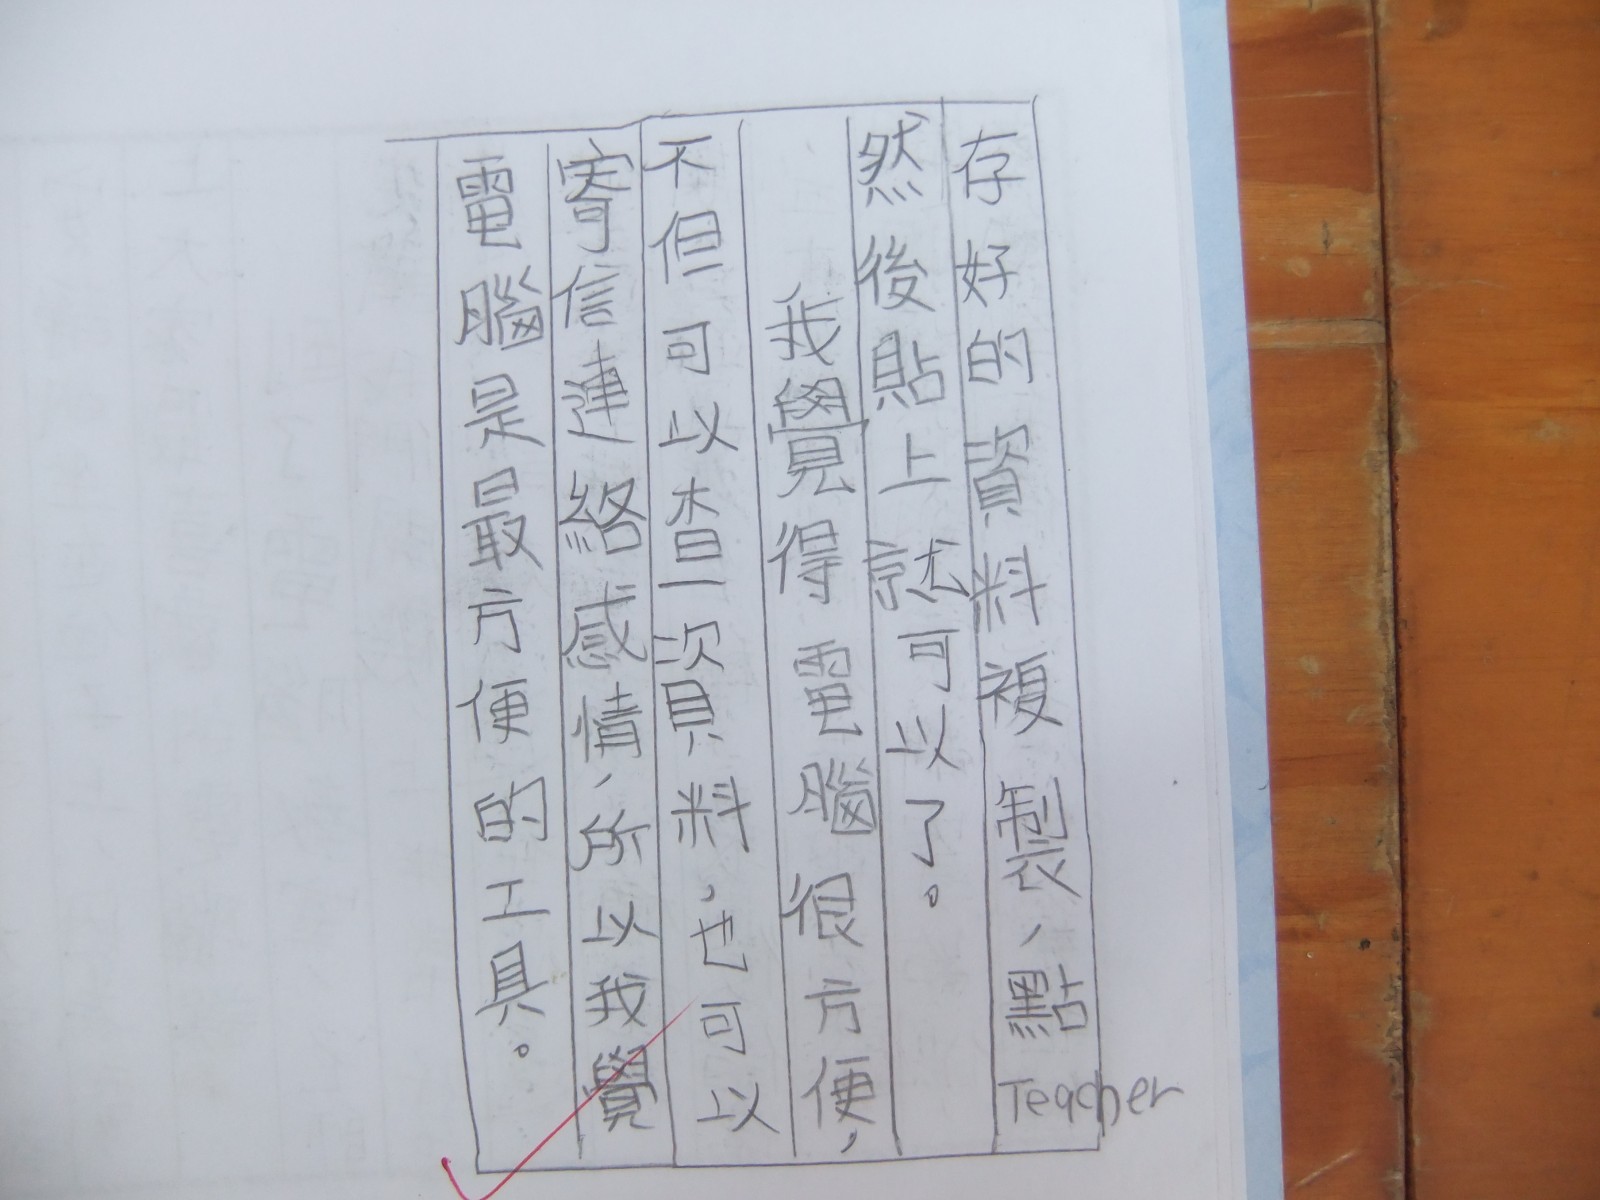 存好的資料複製，點Teacher
然後貼上就可以了。
我覺得電腦很方便，
不但可以查一次資料，也可以
寄信連絡感情，所以我覺
電腦是最方便的工具。